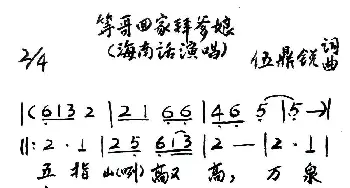 等哥回家拜爹娘
(海南话演唱)
2/4 伍鼎锐 词曲
|(6132|21 66|46 5|5-)|
‖:2·1|25 613|2-|2·1|
五指山(啊)高又高,万泉